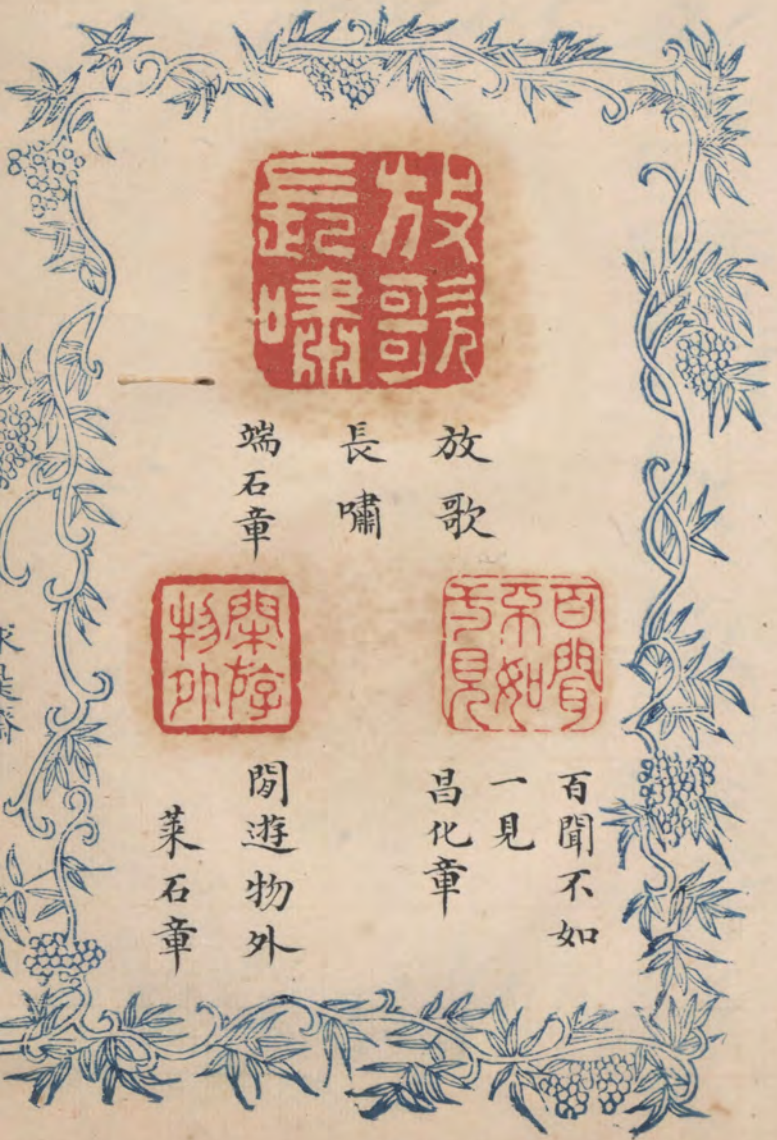 放歌
長嘯
放歌
長嘯
端石章
百聞
不如
一見
百聞不如
一見
昌化章
閑游
物外
閒遊物外
萊石章